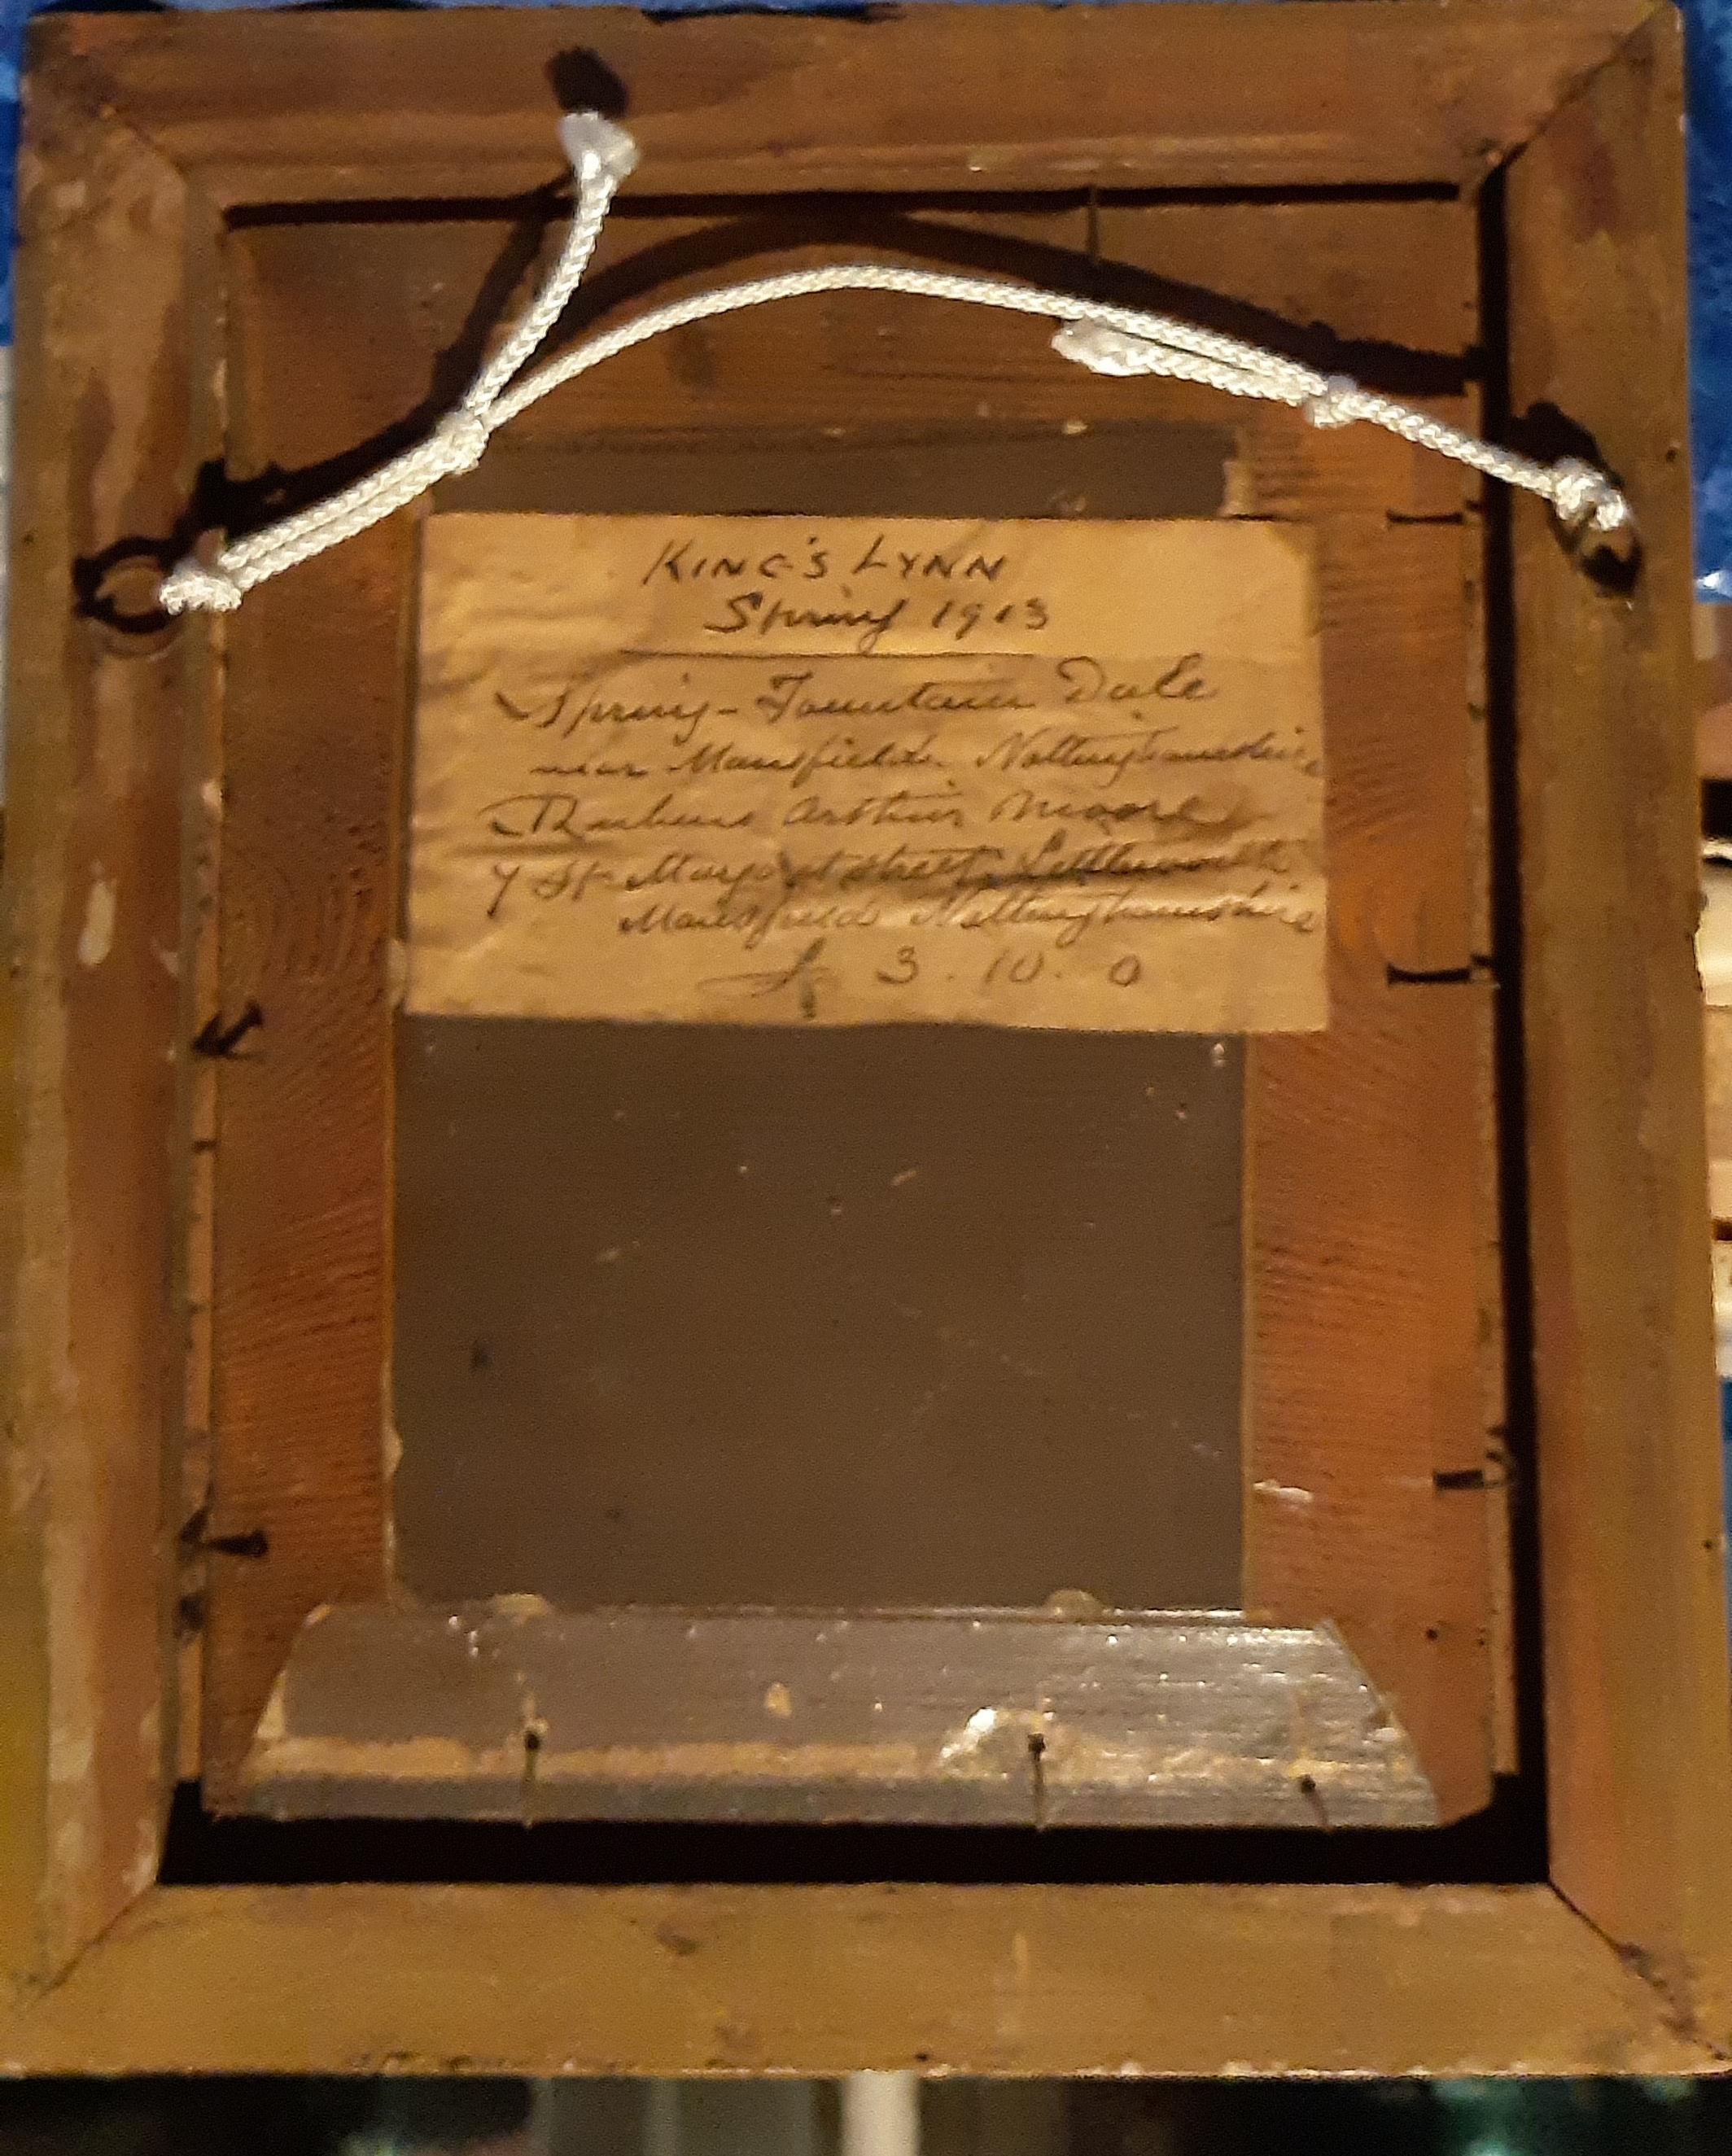 KING'S LYNN
Spring 1913
Spring - Fountain Dale
near Mansfield. Nottinghamshire
Rubens Arthur Moore
7 St Margaret Street, Littleworth
Mansfield Nottinghamshire
£ 3. 10. 0